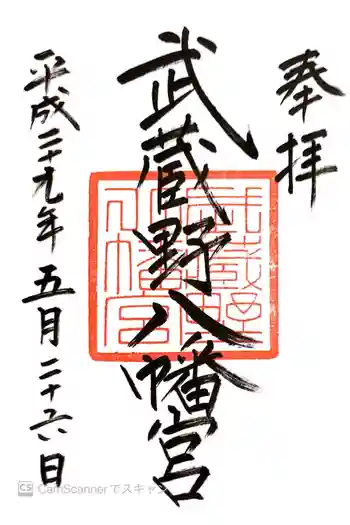 奉拝
武蔵野八幡宮
平成二十九年五月二十六日
武蔵野八幡宮
CS CamScannerでスキャン